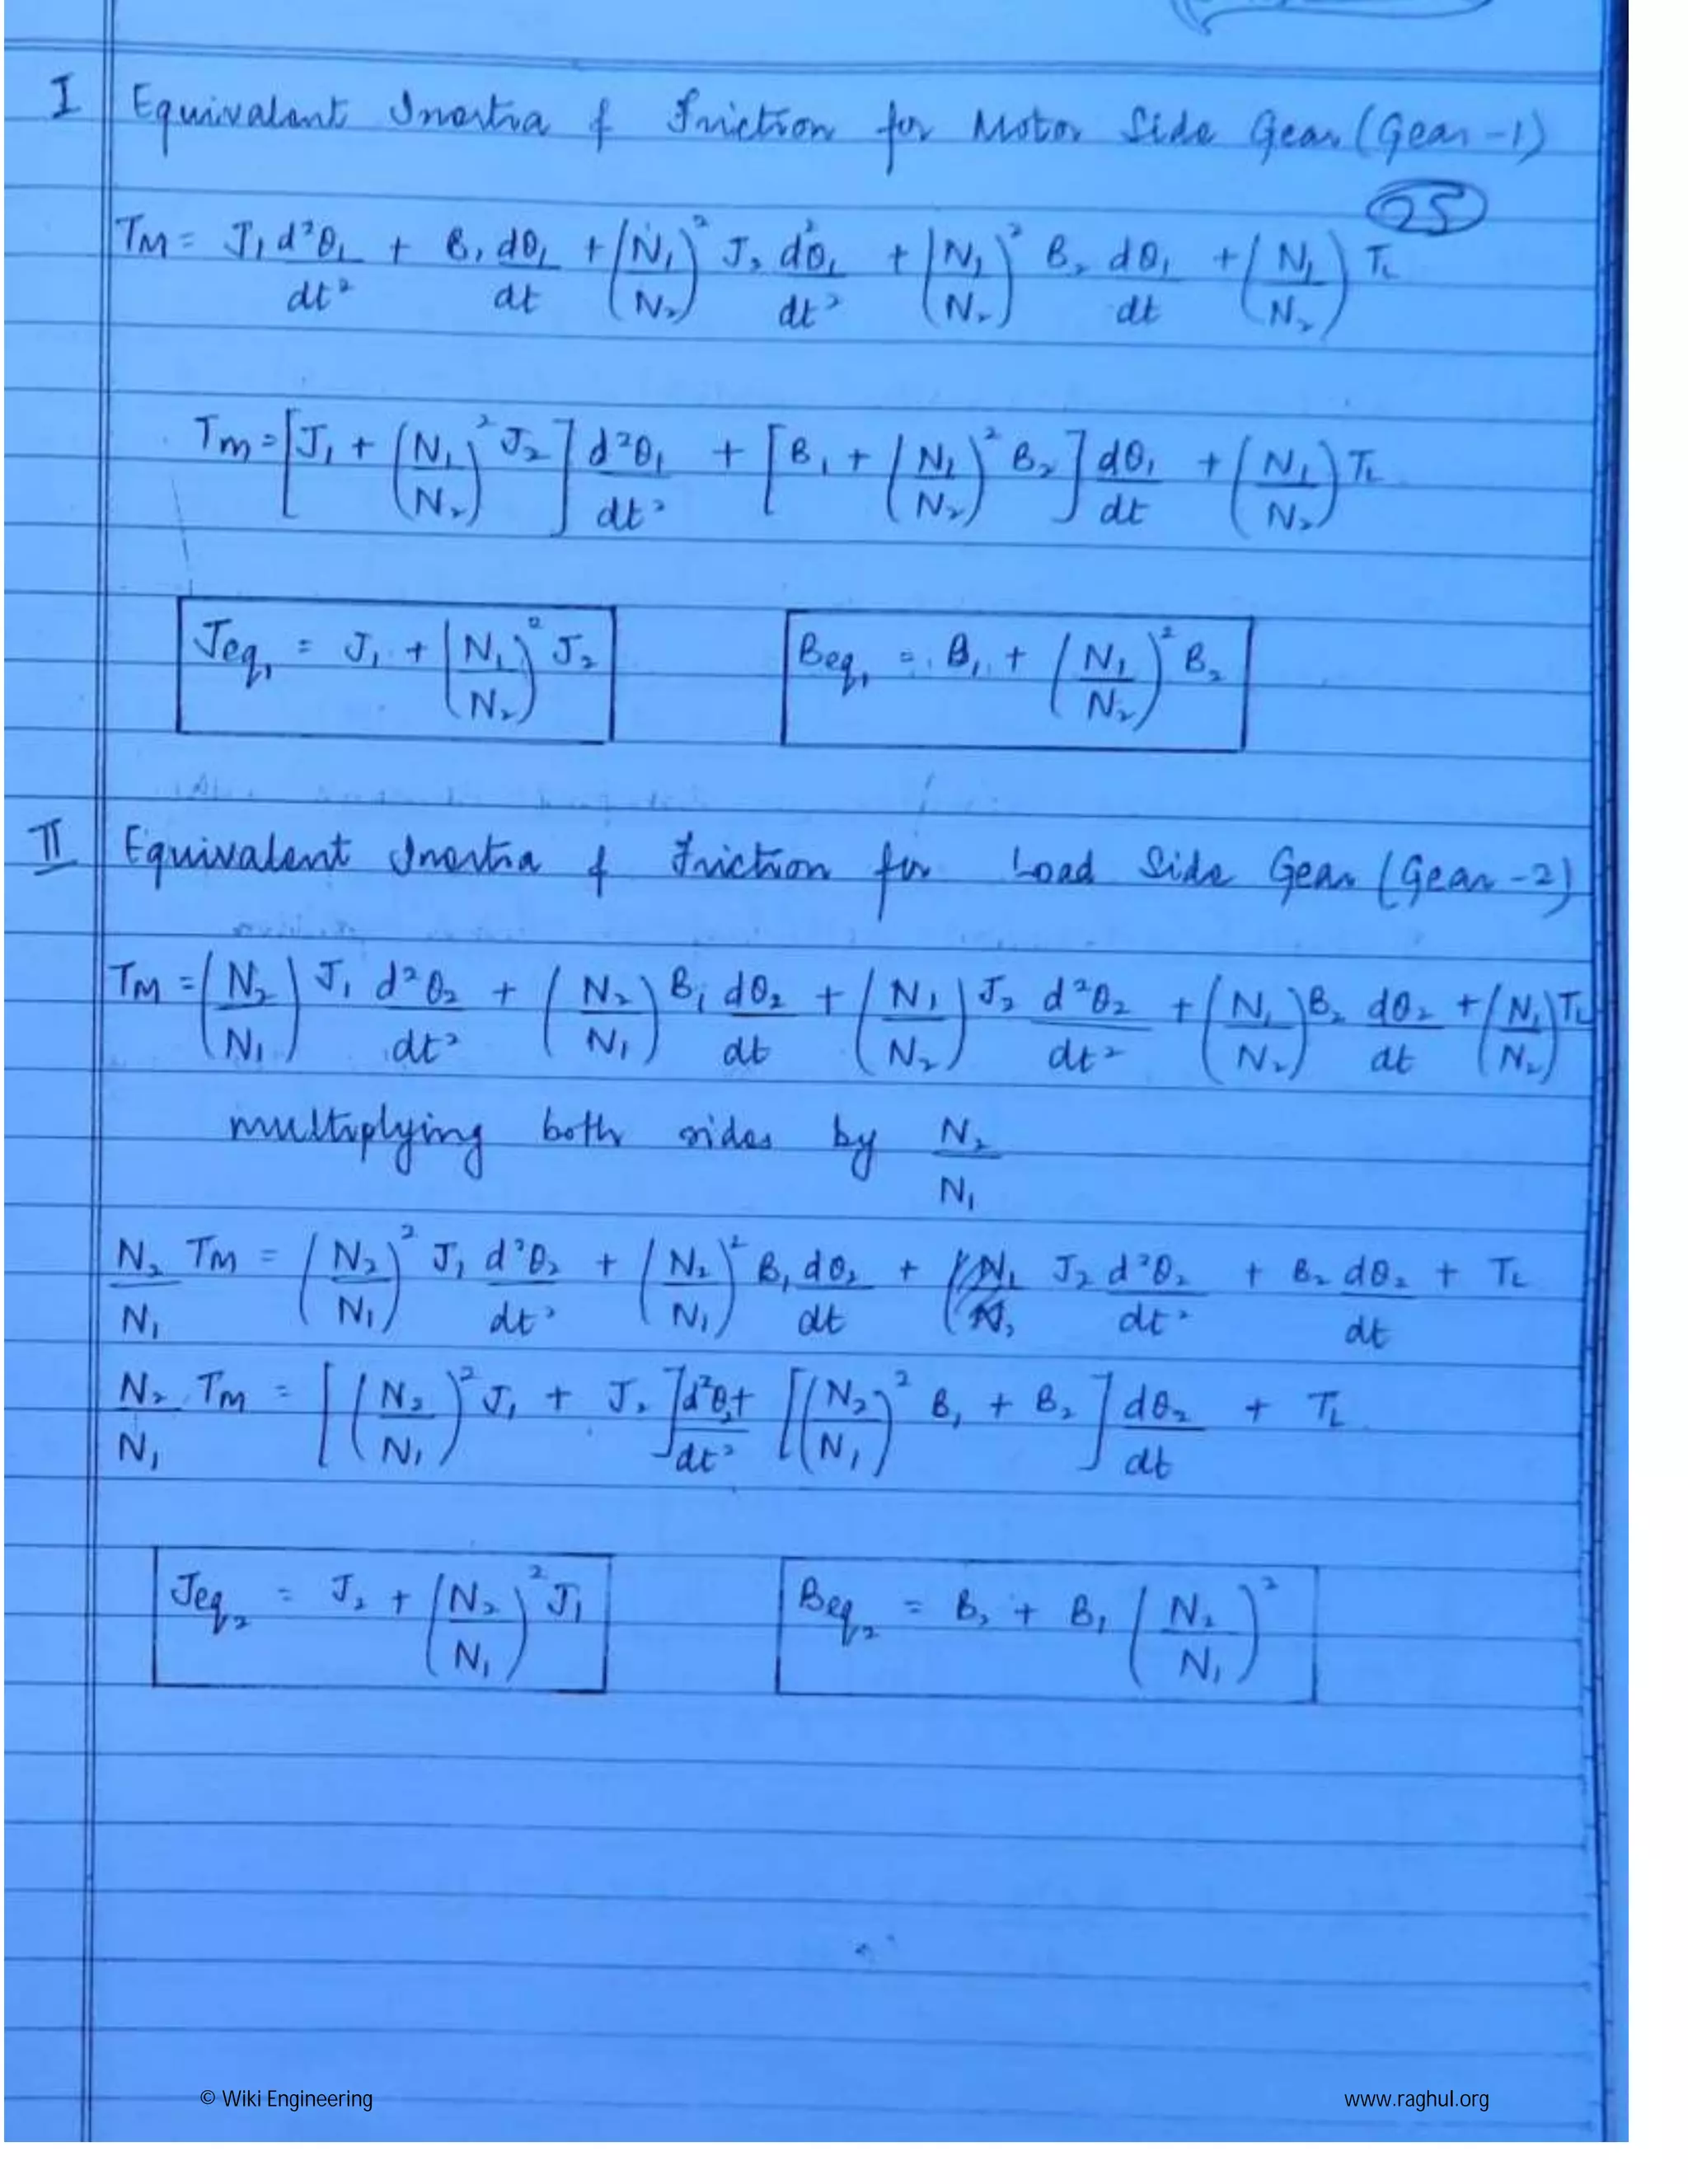 I Equivalent Inertia & Friction for Motor Side Gear (Gear-1)
25
TM = J₁ d²θ₁/dt² + B₁ dθ₁/dt + (N₁/N₂)² J₂ d²θ₁/dt² + (N₁/N₂)² B₂ dθ₁/dt + (N₁/N₂) TL
Tm = [J₁ + (N₁/N₂)² J₂] d²θ₁/dt² + [B₁ + (N₁/N₂)² B₂] dθ₁/dt + (N₁/N₂) TL
Jeq₁ = J₁ + (N₁/N₂)² J₂ Beq₁ = B₁ + (N₁/N₂)² B₂
II Equivalent Inertia & Friction for Load Side Gear (Gear-2)
TM = (N₂/N₁) J₁ d²θ₂/dt² + (N₂/N₁) B₁ dθ₂/dt + (N₁/N₂) J₂ d²θ₂/dt² + (N₁/N₂) B₂ dθ₂/dt + (N₁/N₂) TL
multiplying both sides by N₂/N₁
N₂/N₁ TM = (N₂/N₁)² J₁ d²θ₂/dt² + (N₂/N₁)² B₁ dθ₂/dt + J₂ d²θ₂/dt² + B₂ dθ₂/dt + TL
N₂/N₁ Tm = [(N₂/N₁)² J₁ + J₂] d²θ₂/dt² + [(N₂/N₁)² B₁ + B₂] dθ₂/dt + TL
Jeq₂ = J₂ + (N₂/N₁)² J₁ Beq₂ = B₂ + B₁ (N₂/N₁)²
© Wiki Engineering www.raghul.org